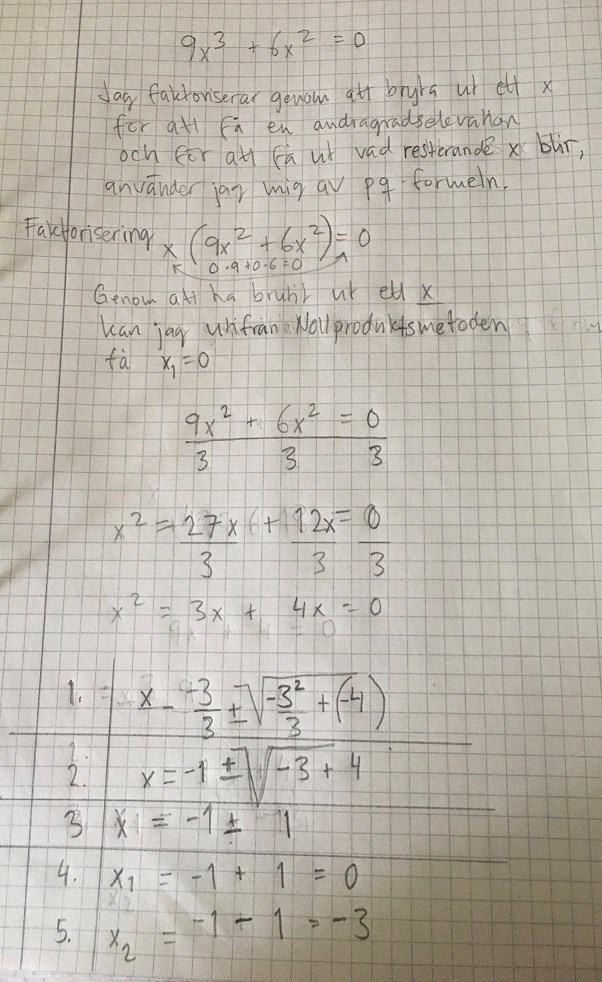 9x³ + 6x² = 0
Jag faktoriserar genom att bryta ut ett x
för att få en andragradselevation
och för att få ut vad resterande x blir,
använder jag mig av pq-formeln.
Faktorisering x(9x² + 6x²) = 0
0·9+0·6=0
Genom att ha brutit ut ett x
kan jag utifrån Nollproduktsmetoden
få x₁ = 0
9x²/3 + 6x²/3 = 0/3
x² = 27x/3 + 12x/3 = 0/3
x² = 3x + 4x = 0
1. x - -3/3 ± √(-3²/3 + (-4)
2. x = -1 ± √-3 + 4
3 x = -1 ± 1
4. x₁ = -1 + 1 = 0
5. x₂ = -1 - 1 = -3